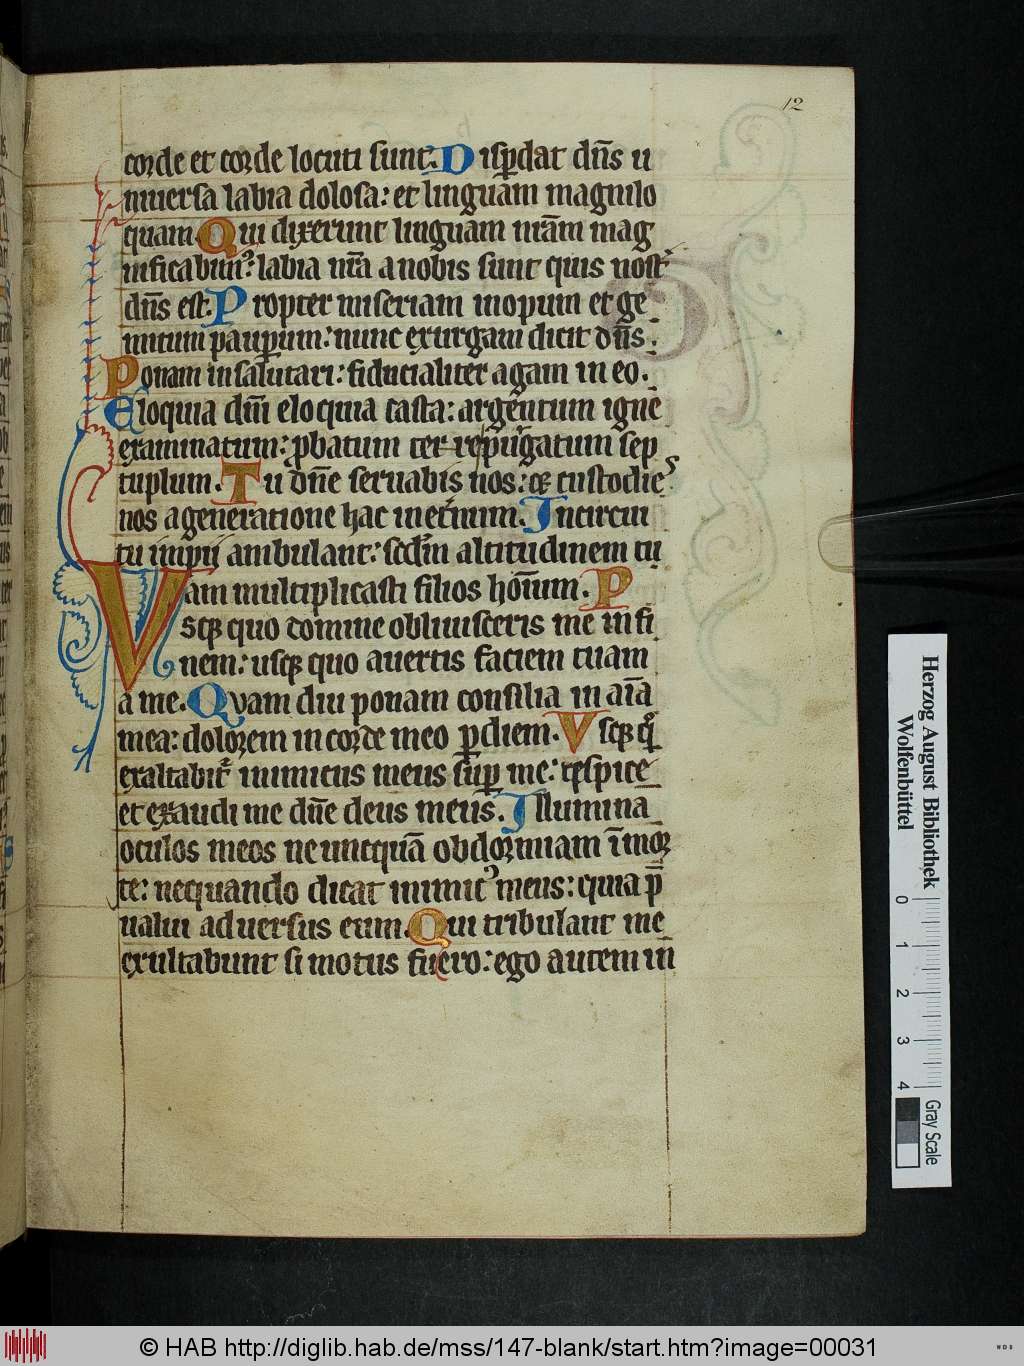 12
corde et corde locuti sunt. Disp̄dat dn̄s u
niuersa labia dolosa: et linguam magnilo
quam. Qui dixerunt linguam nr̄am mag
nificabim᷒: labia nr̄a a nobis sunt quis nost᷑
dn̄s est. Propter miseriam inopum et ge
mitum paup̄um: nunc exurgam dicit dn̄s.
Ponam in salutari: fiducialiter agam in eo.
Eloquia dn̄i eloquia casta: argentum igne
examinatum: ꝓbatum terre purgatum sep
tuplum. Tu dn̄e seruabis nos: et custodies
nos a generatione hac in et̄num. In circui
tu impij ambulant: scd̄m altitudinem tu
am multiplicasti filios hōium. P
Vsqꝫ quo domine obliuisceris me in fi
nem: usqꝫ quo auertis faciem tuam
a me. Quam diu ponam consilia in aīa
mea: dolorem in corde meo ꝑ diem. Vsqꝫ q°
exaltabit᷑ inimicus meus sup̄ me: respice
et exaudi me dn̄e deus meus. Illumina
oculos meos ne unequā obdormiam ī mor
te: nequando dicat inimic᷒ meus: quia p̄
ualui aduersus eum. Qui tribulant me
exultabunt si motus fuero: ego autem in
Herzog August Bibliothek
Wolfenbüttel
0 1 2 3 4
Gray Scale
© HAB http://diglib.hab.de/mss/147-blank/start.htm?image=00031